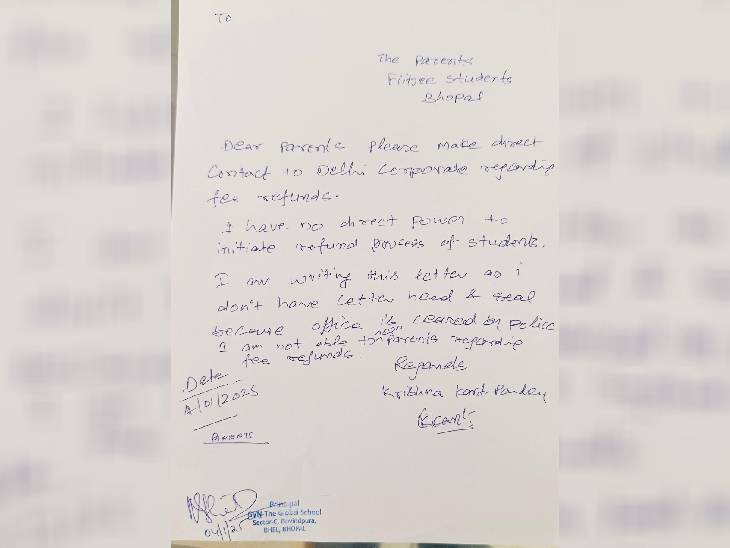 To
The Parents
Fiitjee Students
Bhopal
Dear Parents Please make direct
Contact to Delhi Corporate regarding
fee refunds.
I have no direct power to
initiate refund process of students.
I am writing this letter as i
don't have letter head & seal
because office is seared by police
I am not able to parents regarding
fee refunds
Regards
Krishna Kant Pandey
Kkant
Date
4/01/2025
Principal
GVN-The Global School
Sector-C, Govindpura,
BHEL, BHOPAL
04/1/25